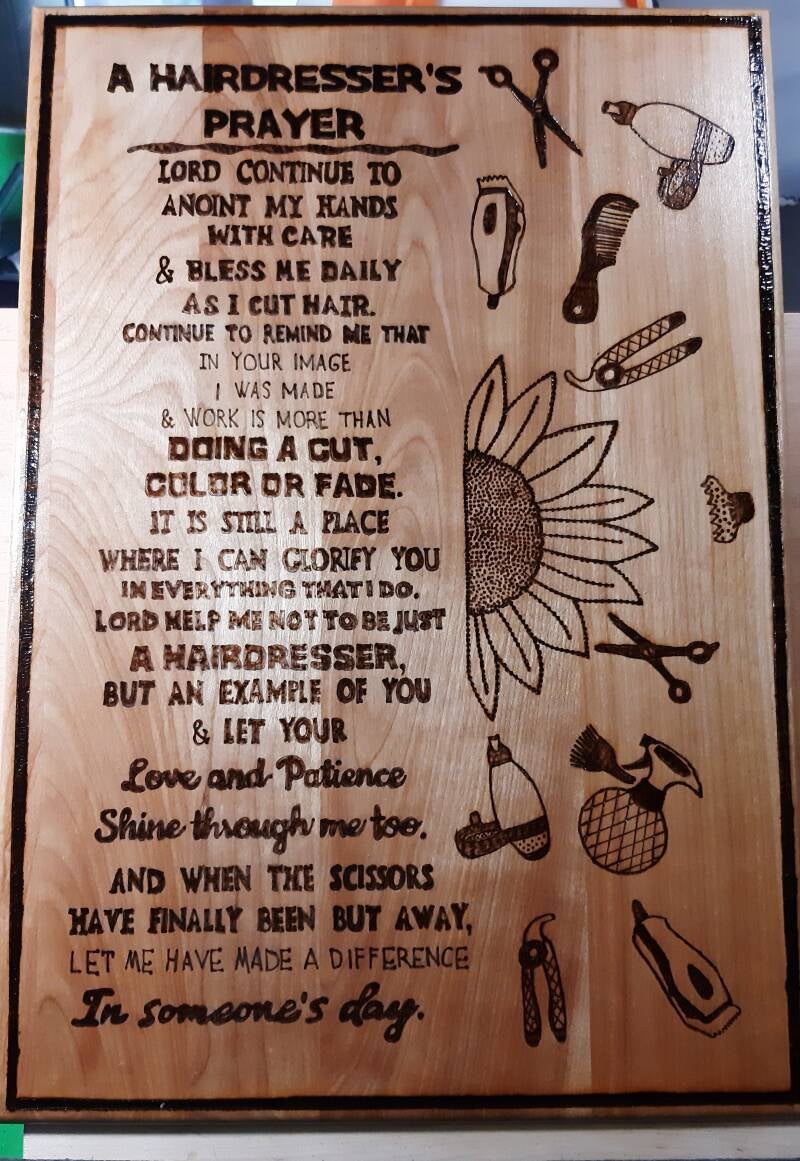 A HAIRDRESSER'S
PRAYER
LORD CONTINUE TO
ANOINT MY HANDS
WITH CARE
& BLESS ME DAILY
AS I CUT HAIR.
CONTINUE TO REMIND ME THAT
IN YOUR IMAGE
I WAS MADE
& WORK IS MORE THAN
DOING A CUT,
COLOR OR FADE.
IT IS STILL A PLACE
WHERE I CAN GLORIFY YOU
IN EVERYTHING THAT I DO.
LORD HELP ME NOT TO BE JUST
A HAIRDRESSER,
BUT AN EXAMPLE OF YOU
& LET YOUR
Love and Patience
Shine through me too.
AND WHEN THE SCISSORS
HAVE FINALLY BEEN BUT AWAY,
LET ME HAVE MADE A DIFFERENCE
In someone's day.